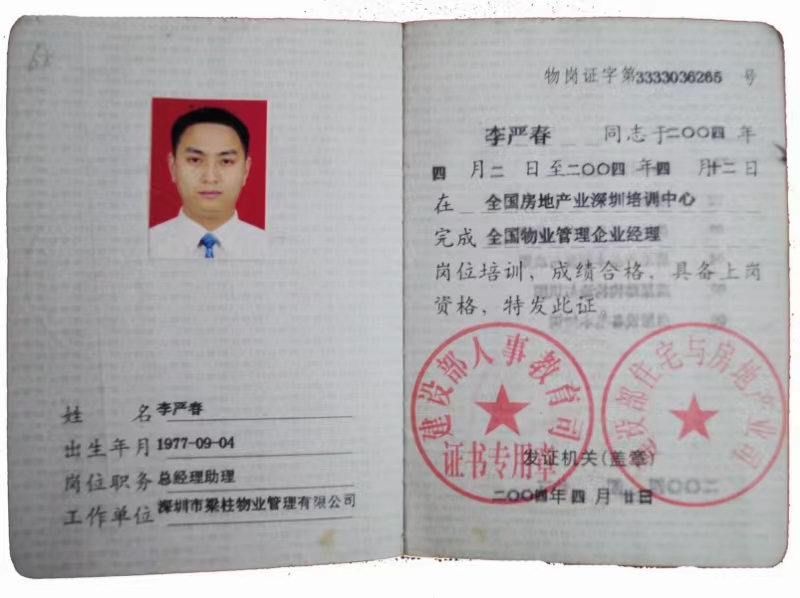 姓 名 李严春
出生年月 1977-09-04
岗位职务 总经理助理
工作单位 深圳市梁柱物业管理有限公司
物岗证字第3333036265 号
李严春 同志于二〇〇四 年
四 月二 日至二〇〇四 年四 月十二日
在 全国房地产业深圳培训中心
完成 全国物业管理企业经理
岗位培训，成绩合格，具备上岗
资格，特发此证。
建设部人事教育司
证书专用章
建设部住宅与房地产业司
发证机关(盖章)
二〇〇四年四月廿日